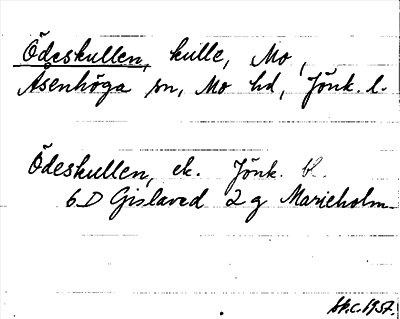 Ödeskullen, kulle, Mo,
Åsenhöga sn, Mo hd, Jönk. l.
Ödeskullen, ek. Jönk. bl.
6D Gislaved 2 g Marieholm
Sk.C. 1957.